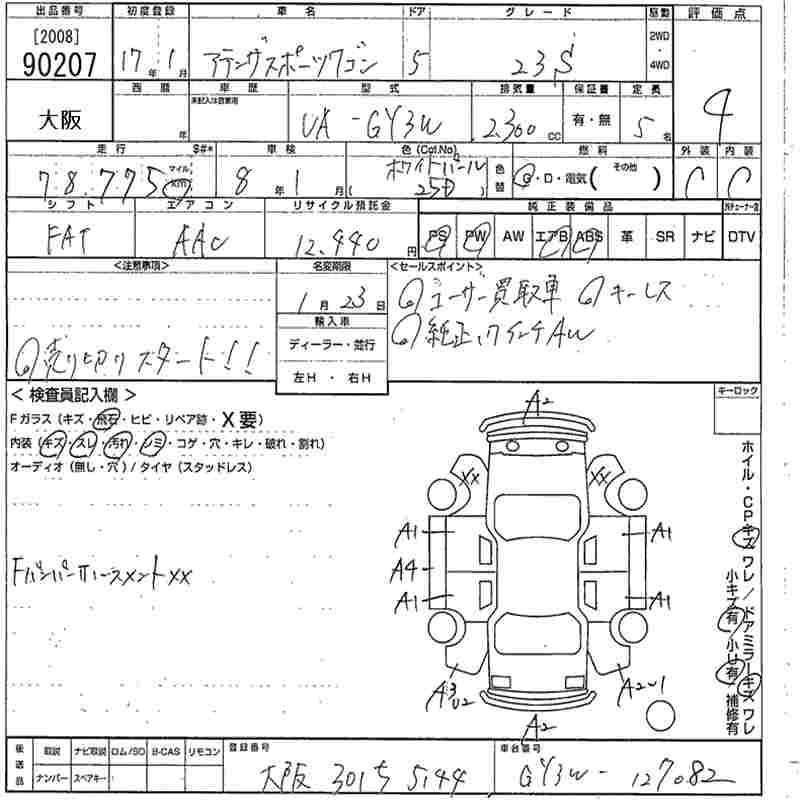 出品番号 初度登録 車名 ドア グレード 駆動 評価点
[2008]
90207
17年1月 アテンザスポーツワゴン 5 23S 2WD・4WD 4
西暦 車歴 型式 排気量 保証書 定員
未記入は自家用
大阪 年 UA-GY3W 2.300cc 有・無 5名
走行 $#* 車検 色(Col.No) 燃料 外装 内装
78.775 マイル Km 8年1月 ホワイトパール (25D) 色替 G・D・電気(その他) C C
シフト エアコン リサイクル預託金 純正装備品
FAT AAC 12.440円 PS PW AW エアB ABS 革 SR ナビ DTV
<注意事項> 名変期限 <セールスポイント>
1月23日 ◎ユーザー買取車 ◎キーレス
輸入車 ◎純正17インチAW
ディーラー・並行
◎売り切りスタート!!
左H・右H
<検査員記入欄> キーロック
Fガラス(キズ・飛石・ヒビ・リペア跡・X要)
内装(キズ・スレ・汚れ・シミ・コゲ・穴・キレ・破れ・割れ)
オーディオ(無し・穴)/タイヤ(スタッドレス)
A2
XX XX
A1 A1
FバンパーホースメントXX A4
A1 A1
A3 U2 A2U1
A2
ホイル・CPキズ ワレ/ドアミラーキズ ワレ
小キズ有/小U有/補修有
後送品 取説 ナビ取説 ロム/SD B-CAS リモコン 登録番号 車台番号
ナンバー スペアキー 大阪 301ち 5144 GY3W-127082